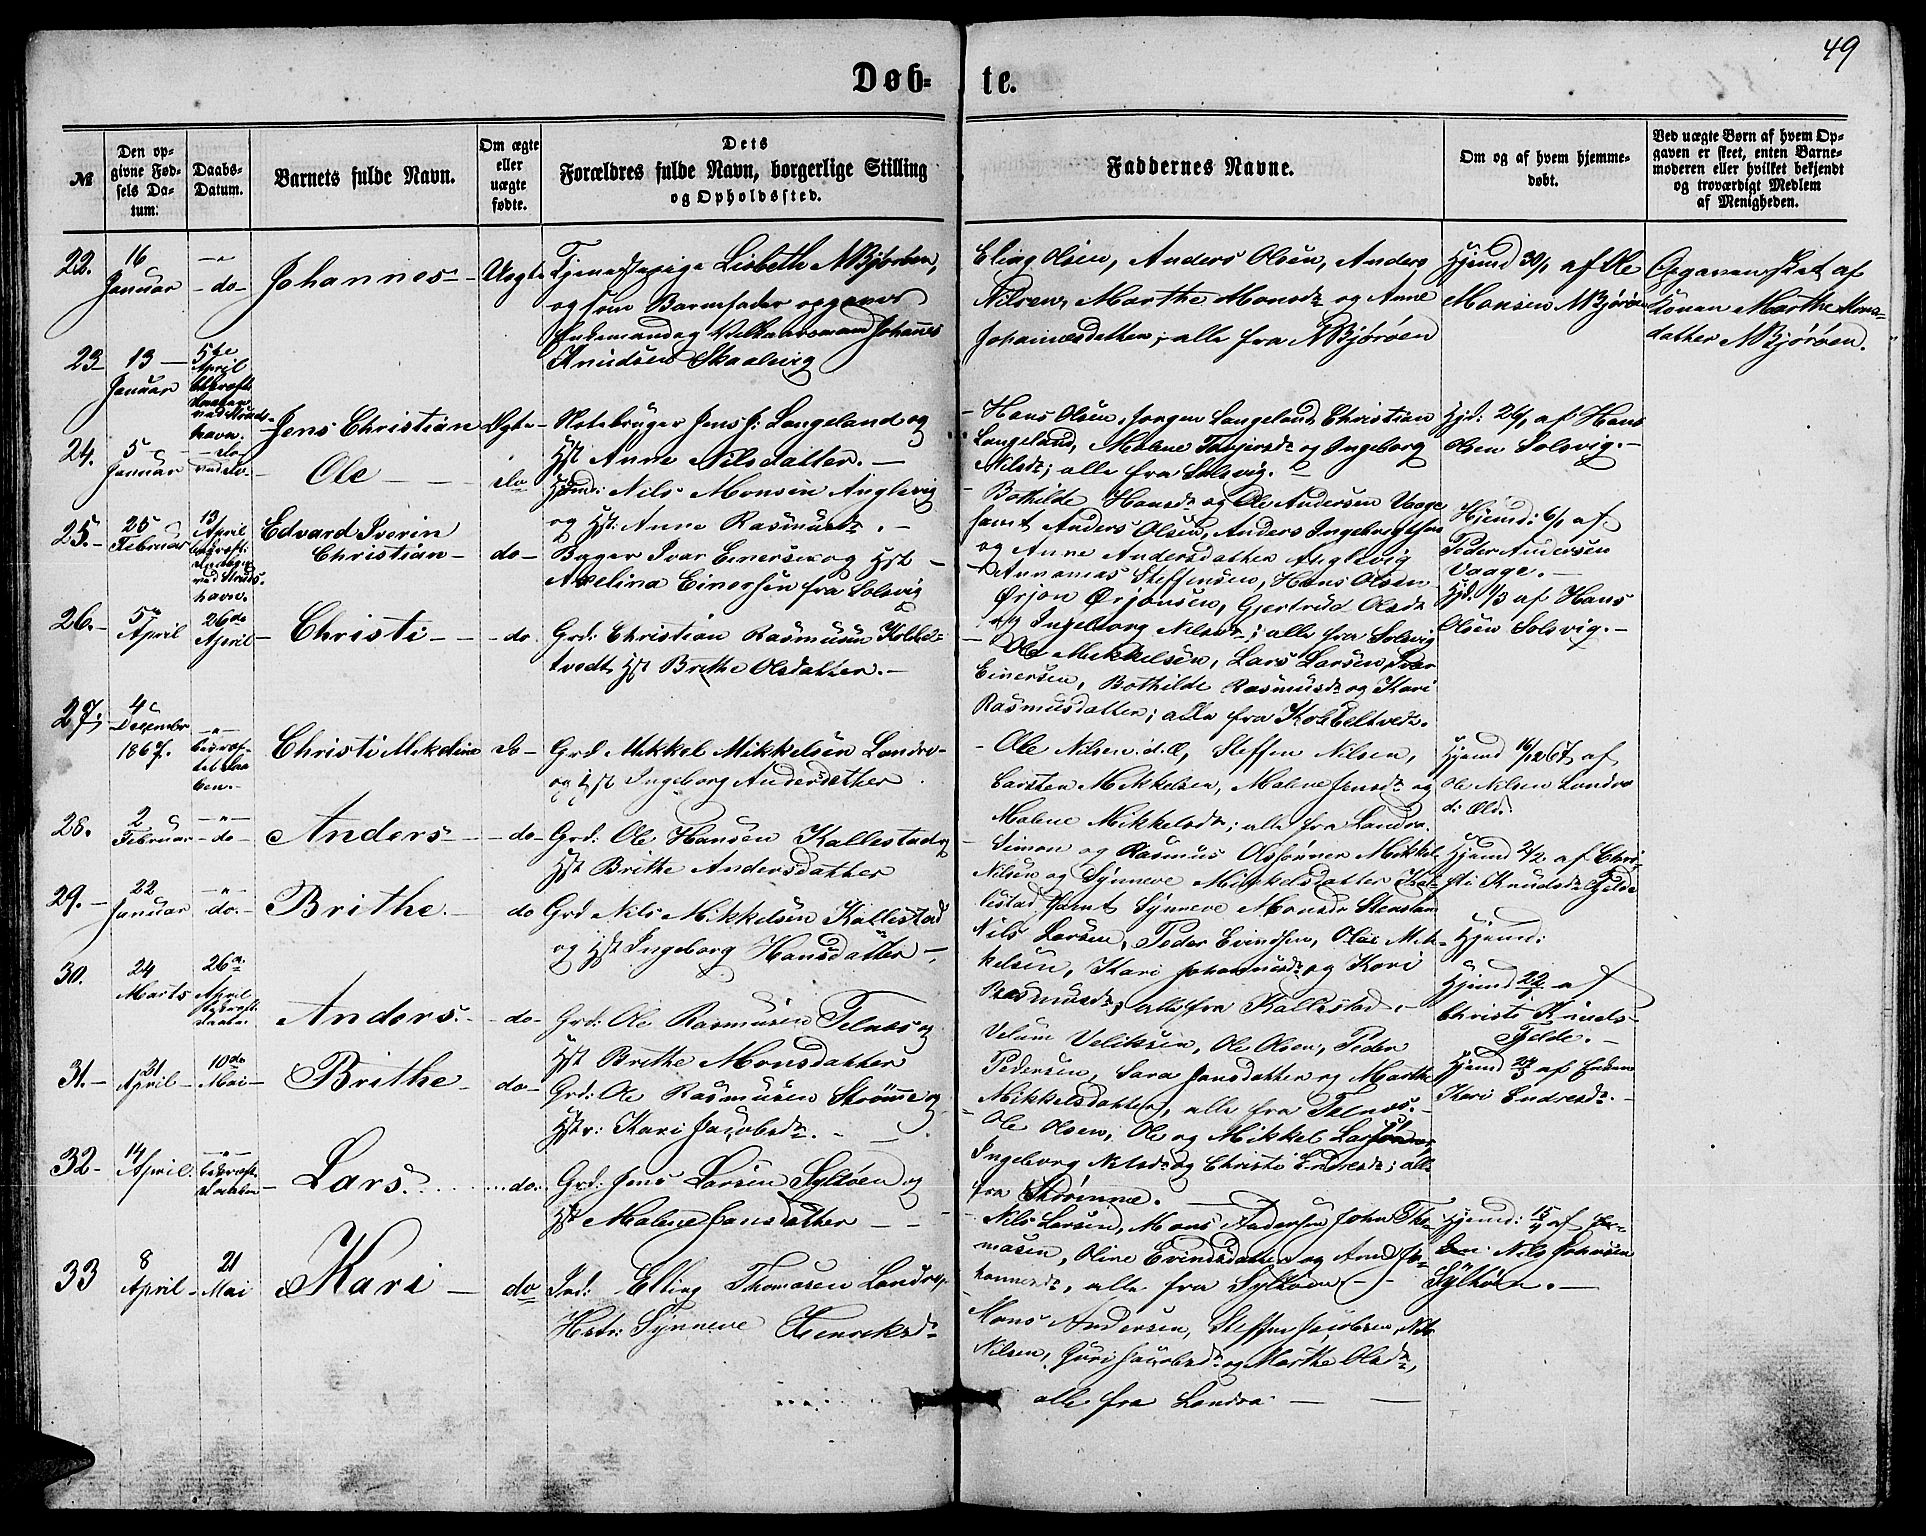 49
Døb-
te.
№
Den op-
givne Fød-
sels Da-
tum.
Daabs-
Datum.
Barnets fulde Navn.
Om ægte
eller
uægte
fødte.
Dets
Forældres fulde Navn, borgerlige Stilling
og Opholdssted.
Faddernes Navne.
Om og af hvem hjemme-
døbt.
Ved uægte Børn af hvem Op-
gaven er skeet, enten Barne-
moderen eller hvilket bekjendt
og troværdigt Medlem
af Menigheden.
22.
16
Januar
-"-
- do -
Johannes -
Uægte
Tjenestepige Lisbeth NBjørøen,
og som Barnefader opgives
Enkemand og Velhavsmand Johannes
Knudsen Skaalvig
Eling Olsen, Anders Olsen, Anders
Nilsen, Marthe Monsdr og Anne
Johannesdatter; alle fra NBjørøen
Hjemd 30/1 af Ole
Monsen NBjørøen
Opgaven skeet af
Konen Marthe Mons-
datter NBjørøen.
23
13
Januar
5te
April
Jens Christian
Ægte -
Notebruger Jens J. Langeland og
Hst Anne Nilsdatter. -
- Hans Olsen, Jørgen Langeland, Christian
Langeland, Malene og Ingeborg
Nilsdr; alle fra Solsvig. -
Hjd. 26/1 af Hans
Olsen Solsvig. -
24.
5
Januar
- do
Ole - -
do
Hmd: Nils Monsen Anglevig
og Hst: Anne Rasmusdr. -
- Bothilde Hansdr og Ole Andersen Vaage
samt Anders Olsen, Anders Ingebregtsen
og Anne Andersdatter Anglevig
Hjemd: 6/1 af
Peder Andersen
Vaage. -
25. -
25
Februar
13
April
Edvard Iverin
Christian -
do -
Bager Ivar Einersen og Hst -
Avelina Einersen fra Solsvig
- Annanias Steffensen, Hans Olsen
Ørjan Ørjansen, Gjertrud Olsdr
og Ingeborg Nilsdr; alle fra Solsvig
Hjd. 1/3 af Hans
Olsen Solsvig. -
26. -
5
April
26de
April -
Christi - -
- do
Grd: Christian Rasmusen Kobbel-
tvedt, Hst Brithe Olsdatter. -
- Ole Mikkelsen, Lars Larsen, Iver
Einersen, Bothilde Rasmusdr og Kari
Rasmusdatter; alle fra Kobbeltvedt.
27.
4
December
1867.
-"-
Christi Mekeline
do -
Grd Mikkel Mikkelsen Landro -
og Hst Ingeborg Andersdatter
- Ole Nilsen d. Æ, Steffen Nilsen,
Carsten Mikkelsen, Malene Jensdr og
Malene Mikkelsdr; alle fra Landro.
Hjemd 16/12 67 af
Ole Nilsen Landro
d: Æld.
28.
2
Februar
-"-
- do -
Anders -
- do -
Grd: Ole Hansen Kallestad og
Hst Brithe Andersdatter
- Simon og Rasmus Olssønner Mikkel
Nilsen og Synneve Mikkelsdatter Kal-
lestad samt Synneve Monsdr
Hjemd 2/2 af Chri-
sti Knudsdr Tjelde
29. -
22
Januar
-"-
- do. -
Brithe. -
do
Grd Nils Mikkelsen Kallestad
og Hst Ingeborg Hansdatter -
Nils Larsen, Peder Evindsen, Olai Mik-
kelsen, Kari Johannesdr og Kari
Rasmusdr; alle fra Kallestad. -
Hjemd:
Hjemd 22/1 af
Christi Knuds-
Tjelde. -
30.
24
Marts
26de
April
Anders. -
- do -
Grd: Ole Rasmusen Telnæs og
Hst Brithe Monsdatter
Velum Veliksen, Ole Olsen, Peder
Pedersen, Sara Jansdatter og Marthe
Mikkelsdatter, alle fra Telnæs. -
Hjemd 24/3 af Enken
Kari Endresdr. -
31. -
31
April -
10de
Mai -
Brithe -
do -
Grd: Ole Rasmusen Strømme og
Hstr: Kari Jacobsdr. -
- Ole Olsen, Ole og Mikkel Larssønner,
Ingeborg Nilsdr og Christi Endresdr; alle
fra Strømme. -
32 -
14
April.
-"-
Lars.
do.
Grd: Jens Larsen Syltøen og
Hst Malene Jansdatter - -
- Nils Larsen, Mons Andersen, John Tho-
masen, Oline Evindsdatter og Anne Jo-
hannesdr, alle fra Syltøen -
Hjemd: 15/4 af
Nils Johnsen
Syltøen. -
33
8
April -
21
Mai
Kari -
do
Ind: Elling Thomasen Landro,
Hstr: Synneve Henriksdr
Mons Andersen, Steffen Jacobsen, Nils
Nilsen, Guri Jacobsdr og Marthe Olsdr,
alle fra Landro - -